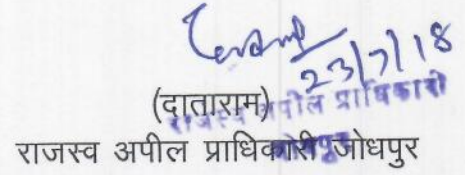 23/7/18
(दाताराम)
राजस्व अपील प्राधिकारी
राजस्व अपील प्राधिकारी जोधपुर